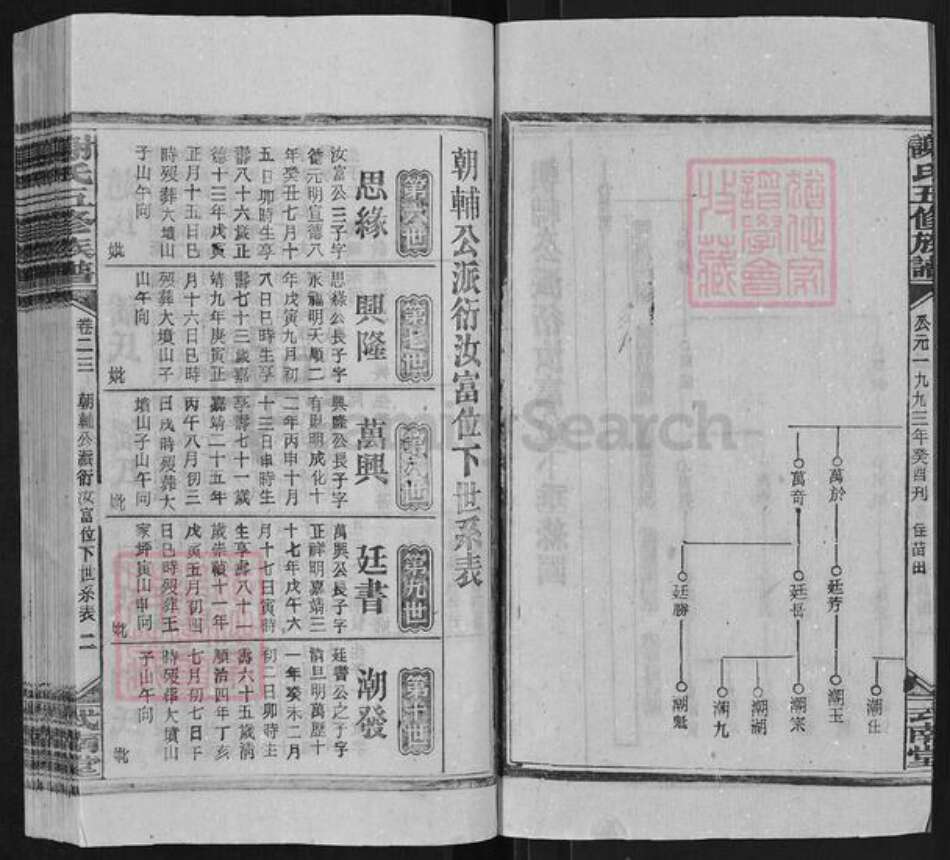 謝氏五修族譜
公元一九九三年癸酉刊
萬於
萬奇
廷芳
廷岳
廷勝
潮仕
潮玉
潮宋
潮湖
潮九
潮魁
朝輔公派衍汝富位下世系表
第六世
思緣
汝富公三子字
德元明宣德八
年癸丑七月十
五日卯時生享
壽八十六歲正
德十三年戊寅
正月十五日巳
時歿葬大墳山
子山午向
妣
第七世
興隆
思緣公長子字
永福明天順二
年戊寅九月初
八日巳時生享
壽七十三歲嘉
靖九年庚寅正
月十六日巳時
歿葬大墳山子
山午向
妣
第八世
萬興
興隆公長子字
有財明成化十
二年丙申十月
十三日申時生
享壽七十一歲
嘉靖二十五年
丙午八月初三
日戌時歿葬大
墳山子山午向
妣
第九世
廷書
萬興公長子字
正祥明嘉靖三
十七年戊午六
月十七日寅時
生享壽八十一
歲崇禎十一年
戊寅五月初四
日巳時歿葬王
家坪寅山申向
妣
第十世
潮發
廷書公之子字
清旦明萬歷十
一年癸未二月
初二日卯時生
壽六十五歲清
順治四年丁亥
七月初七日午
時歿葬大墳山
子山午向
妣
謝氏五修族譜
卷二三
朝輔公派衍汝富位下世系表
二
Search